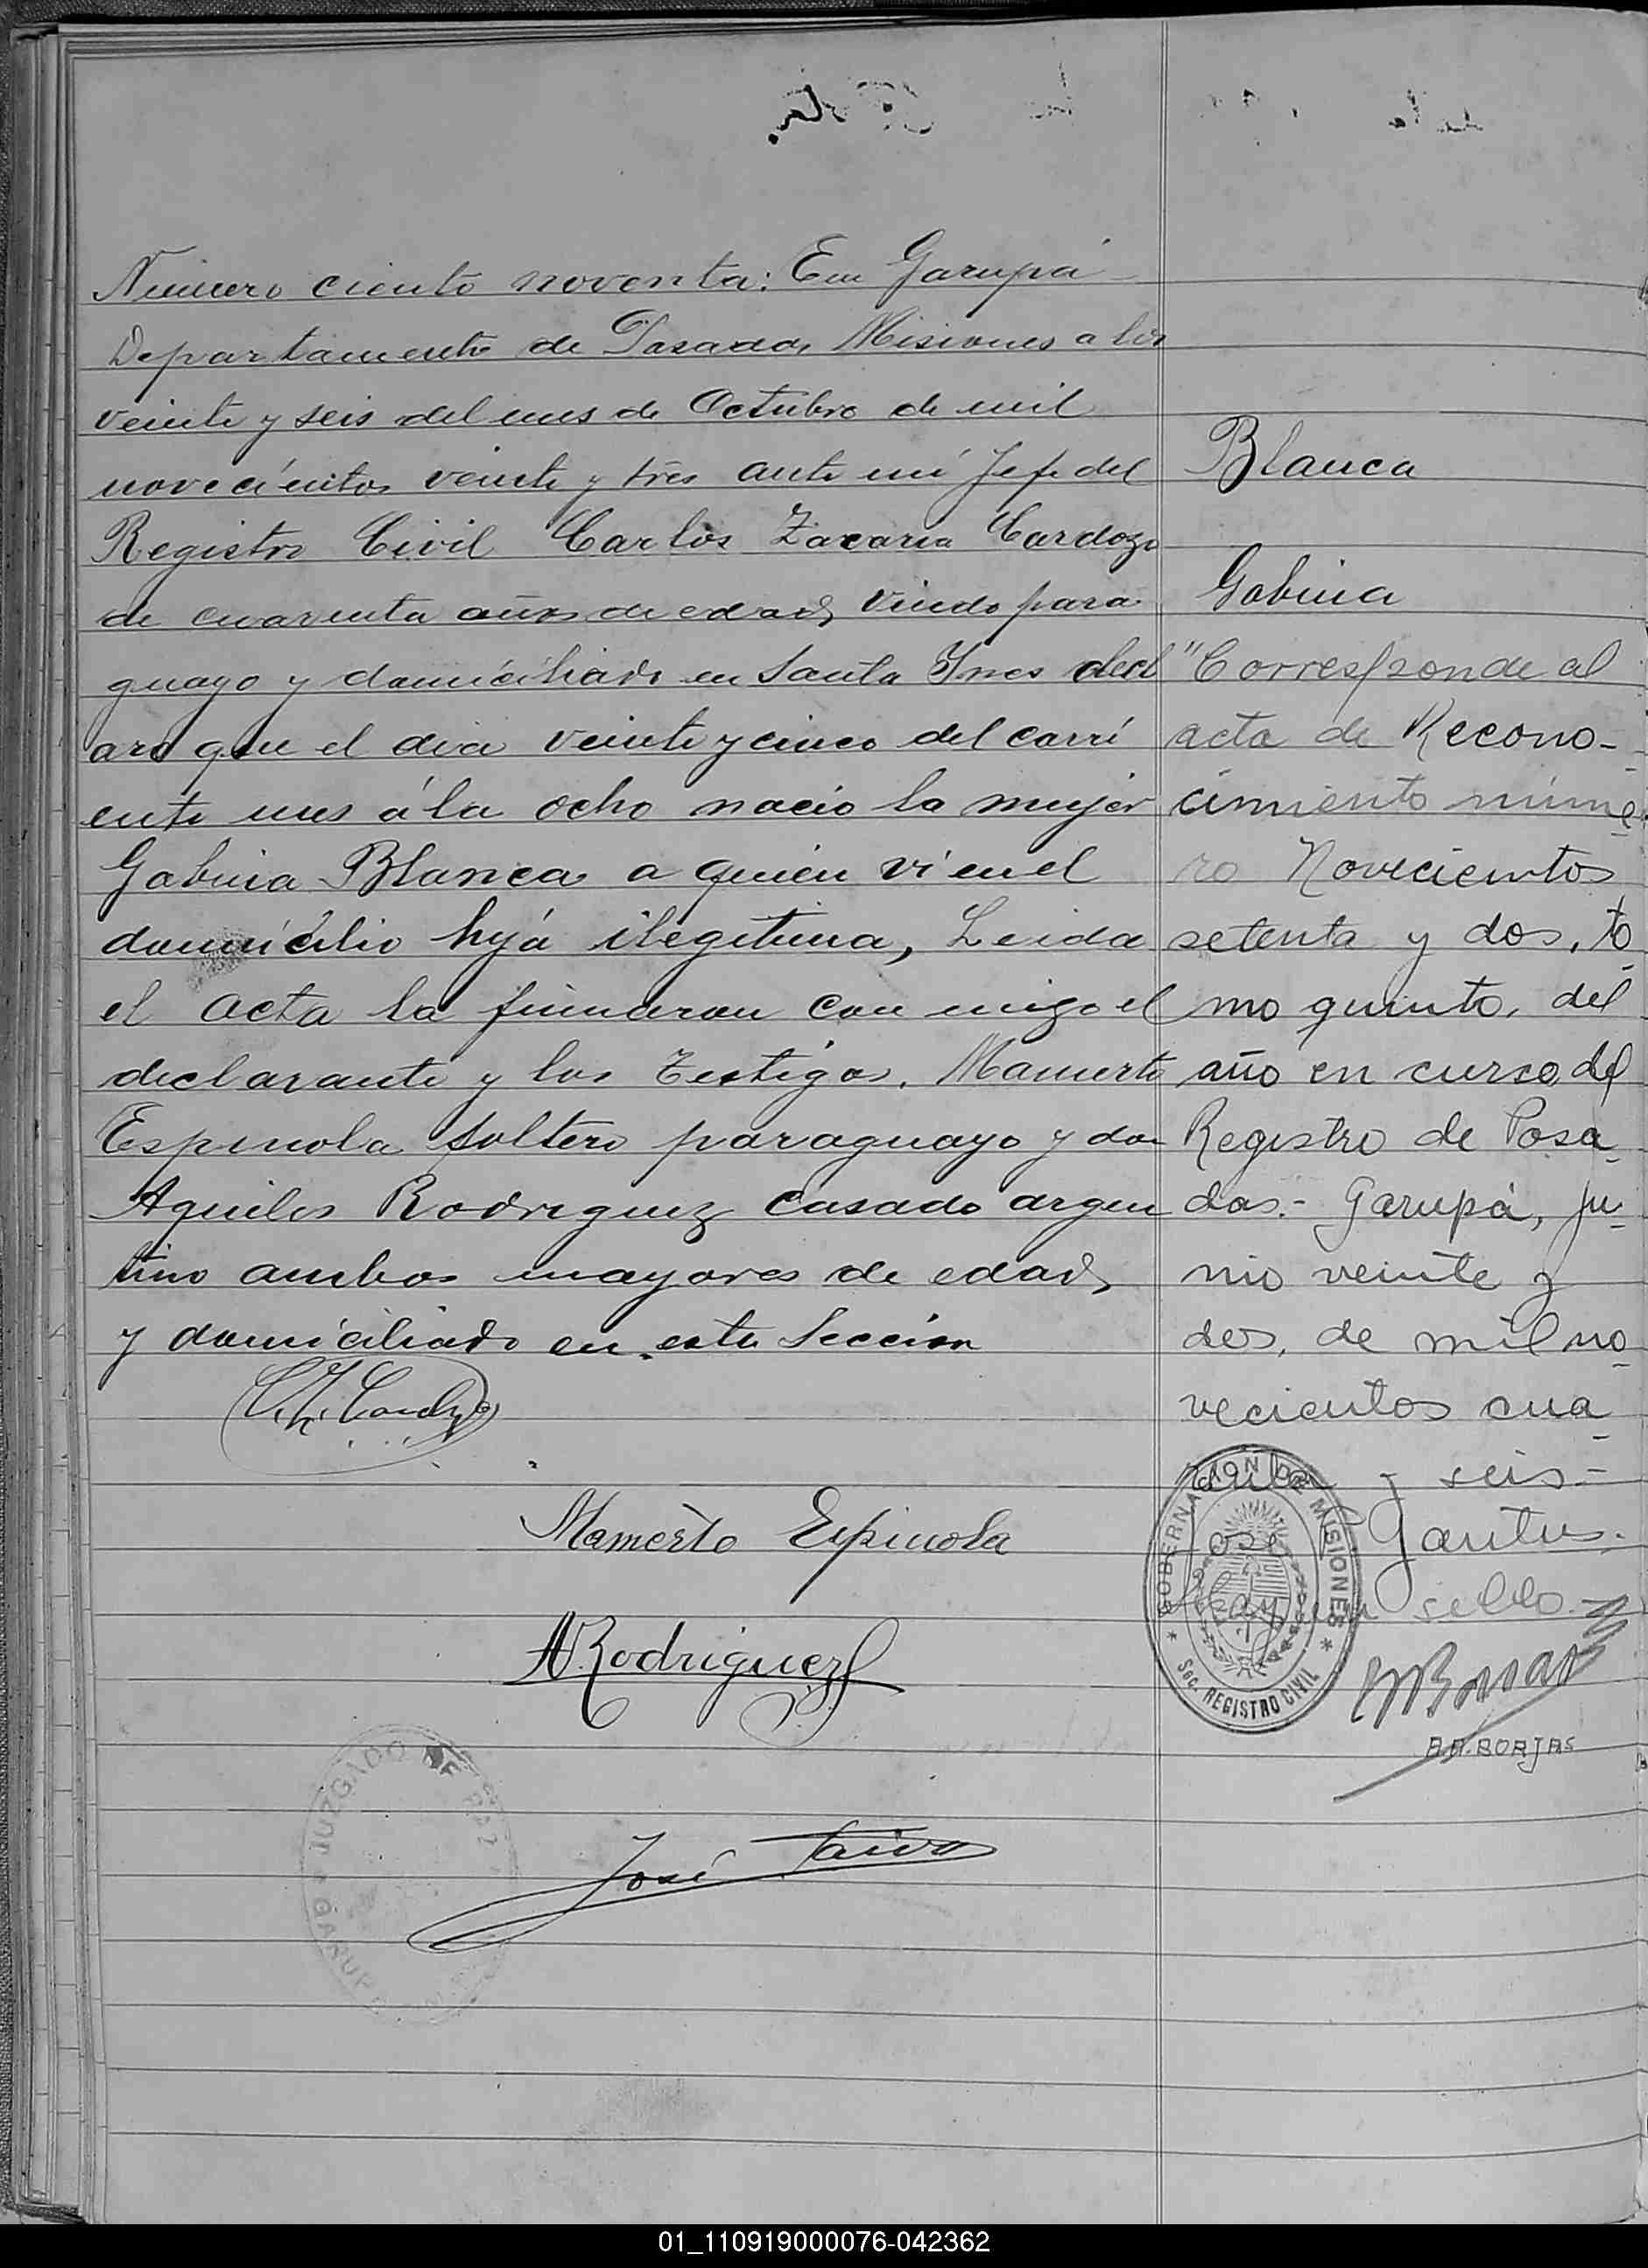 Número ciento noventa: En Garupá
Departamento de Posadas Misiones a los
veinte y seis del mes de Octubre de mil
novecientos veinte y tres ante mi Jefe del
Registro Civil Carlos Zacaria Cardozo
de cuarenta años de edad, viudo para
guayo y domiciliado en Santa Ines decl
aro que el dia veinte y cinco del corri
ente mes á la ocho nacio la mujer
Gabina Blanca a quien vi en el
domicilio hija ilegitima, Leida
el acta la firmaron con migo el
declarante y los Testigos. Mamerto
Espinola soltero paraguayo y don
Aquiles Rodriguez casado argen
tino ambos mayores de edad,
y domiciliado en esta Seccion
C. Z. Cardozo
Mamerto Espinola
A Rodriguez
José
JUZGADO DE PAZ
GARUP
Blanca
Gabina
"Corresponde al
acta de Recono-
cimiento núme-
ro Novecientos
setenta y dos, to-
mo quinto, del
año en curso, del
Registro de Posa-
das.- Garupá, ju-
nio veinte y
dos, de mil no-
vecientos cua-
renta y seis-
José Gantus.
Hay un sello.-
GOBERNACION DE MISIONES
Sec. REGISTRO CIVIL
BORJAS
01_110919000076-042362